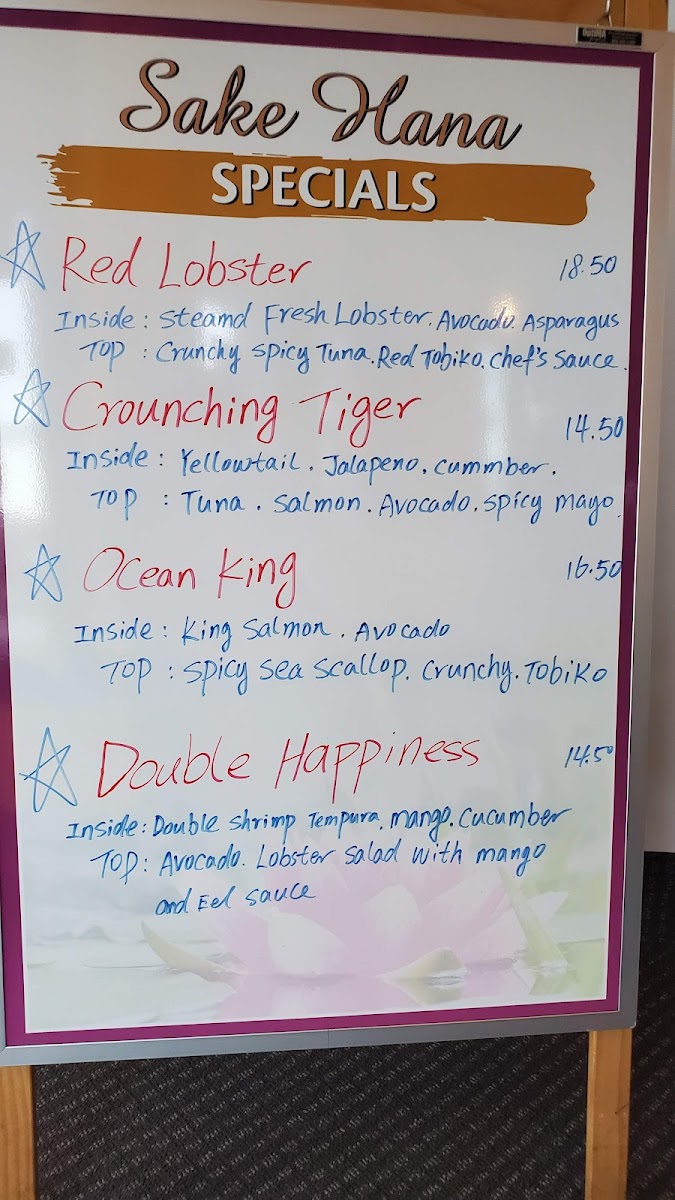 Sake Hana
SPECIALS
Red Lobster 18.50
Inside : Steamd Fresh Lobster. Avocado. Asparagus
Top : Crunchy Spicy Tuna. Red Tobiko. Chef's Sauce.
Crounching Tiger 14.50
Inside : Yellowtail. Jalapeno. cummber.
Top : Tuna. Salmon. Avocado. Spicy mayo.
Ocean King 16.50
Inside : King Salmon. Avocado
Top : Spicy Sea Scallop. Crunchy. Tobiko
Double Happiness 14.50
Inside: Double Shrimp Tempura. mango. Cucumber
Top: Avocado. Lobster Salad with mango
and Eel Sauce